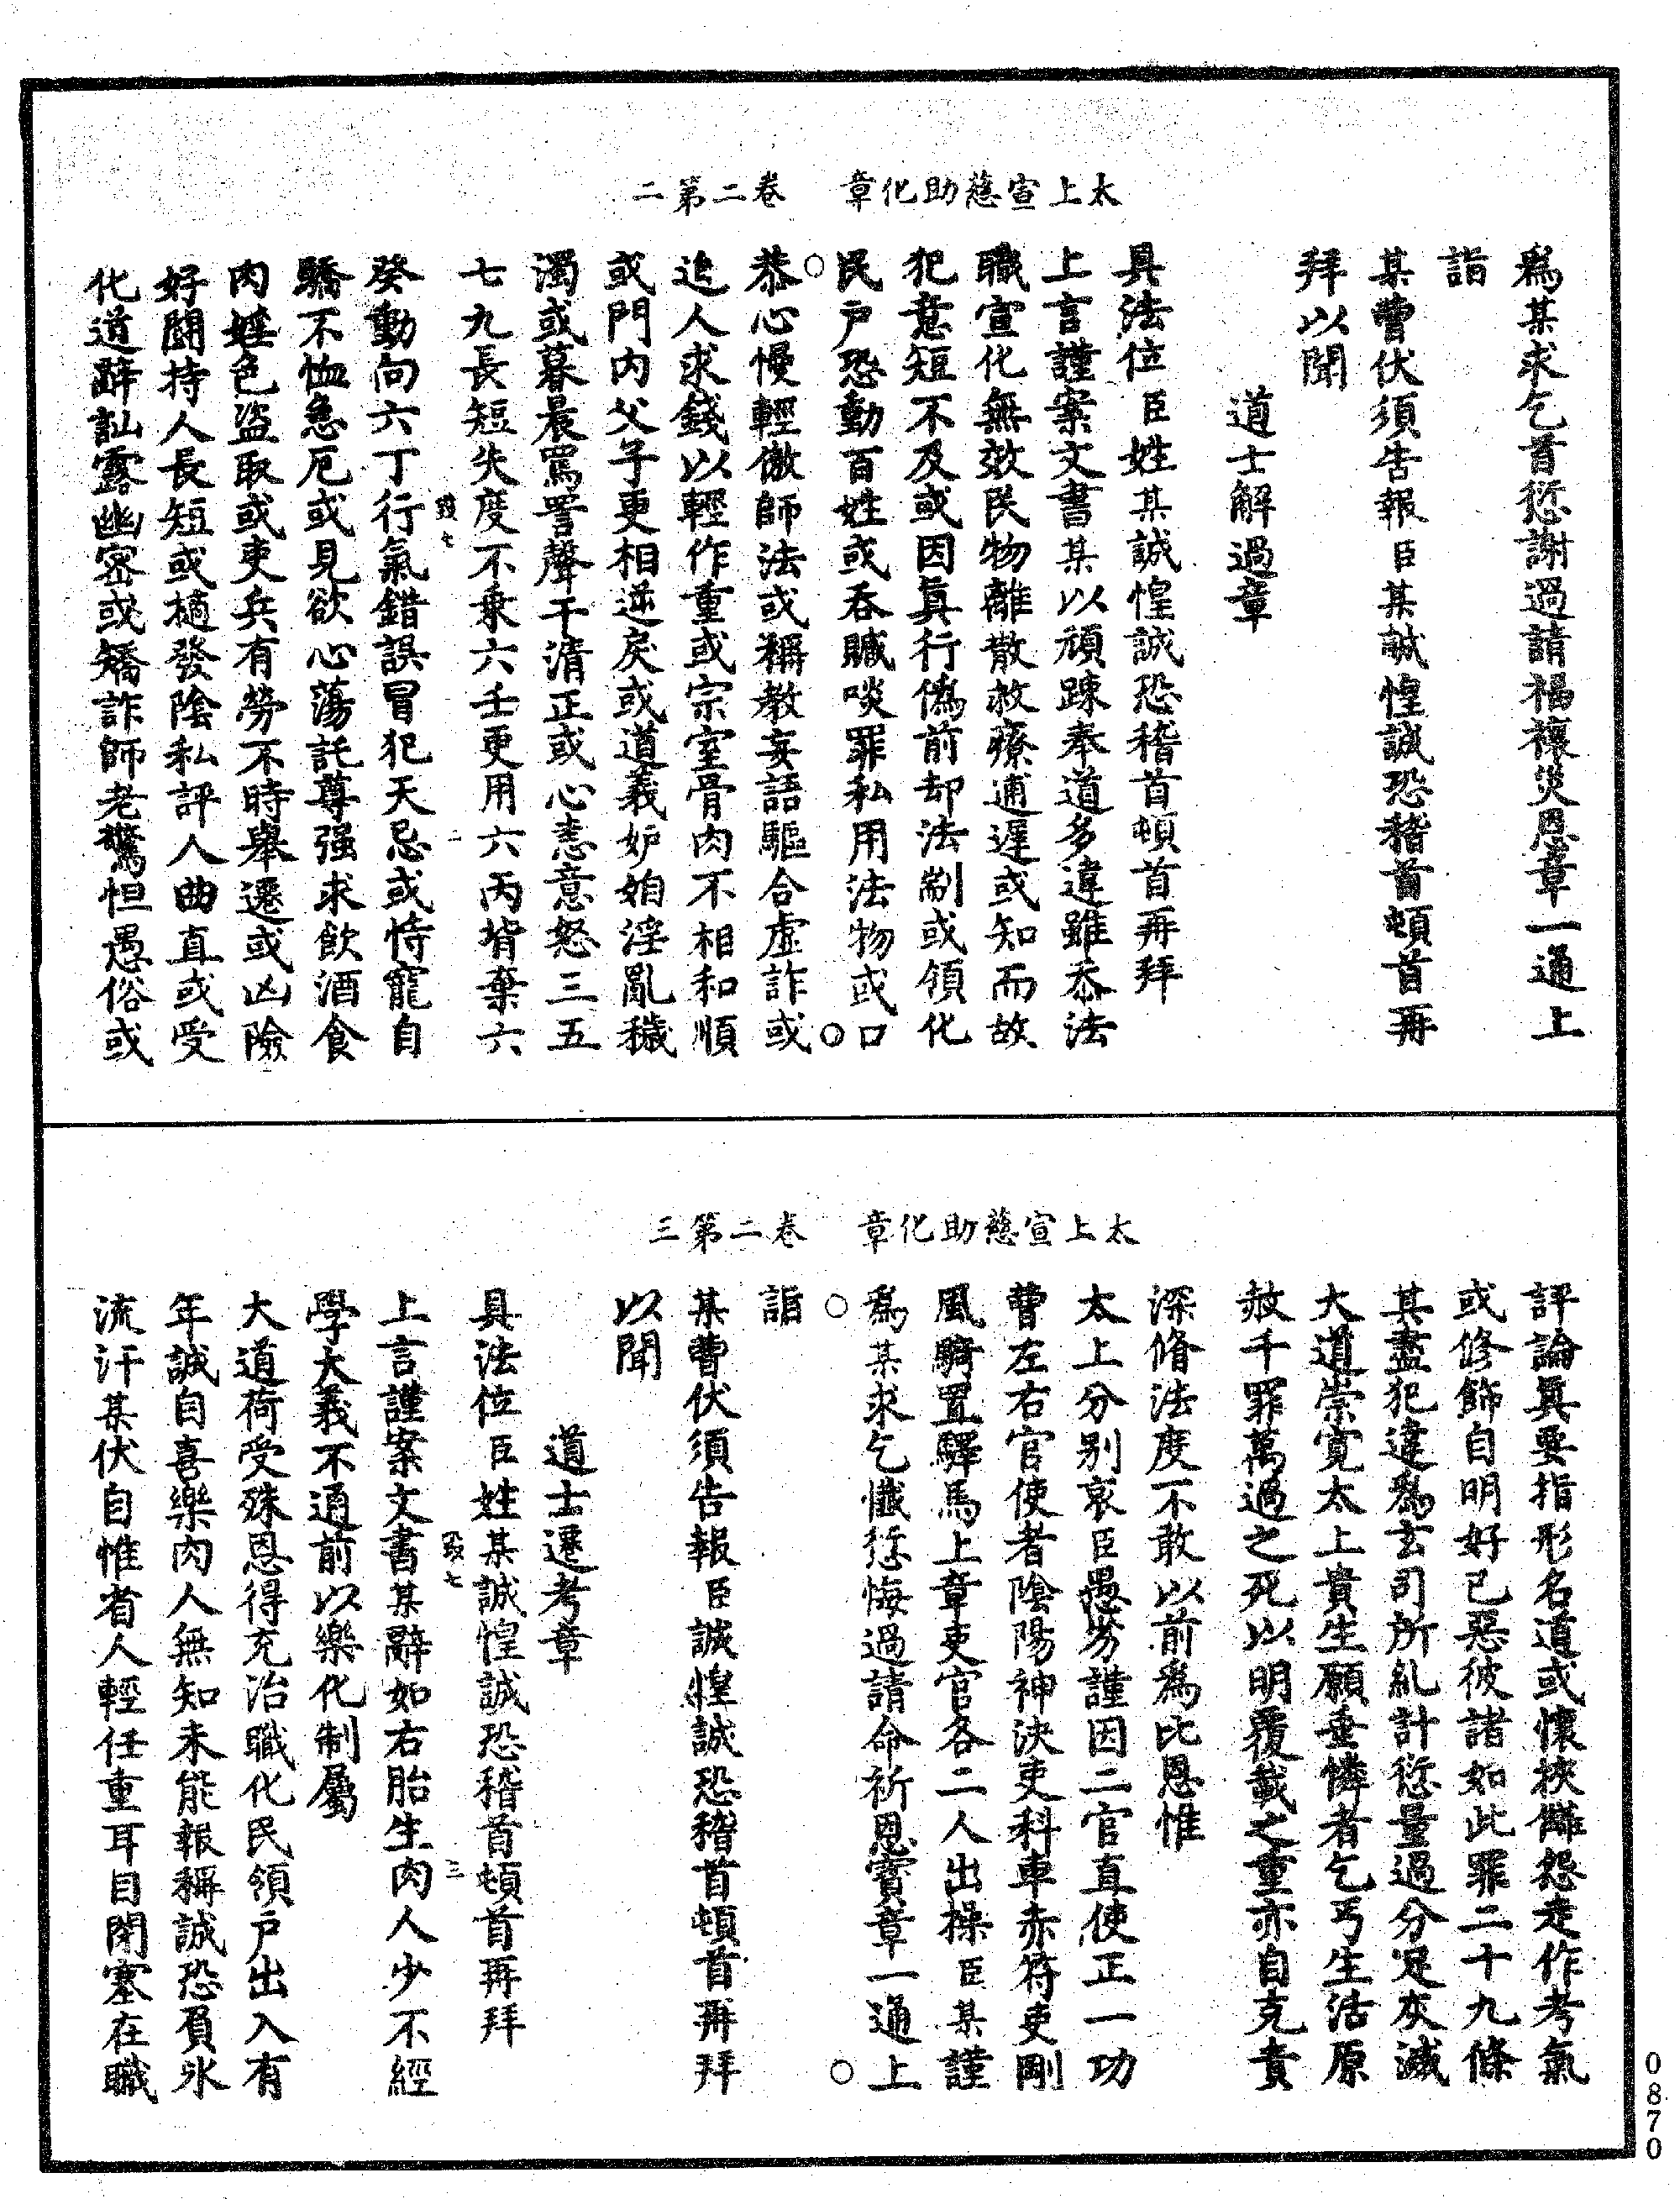 太上宣慈助化章　卷二第二
爲某求乞首愆謝過請福禳災恩章一通上
詣
某曹伏須告報臣某誠惶誠恐稽首頓首再
拜以聞
道士解過章
具法位臣姓某誠惶誠恐稽首頓首再拜
上言謹案文書某以頑踈奉道多違雖忝法
職宣化無效民物離散救療逋遲或知而故
犯意短不及或因眞行僞前却法制或領化
民戶恐動百姓或吞贓啖罪私用法物或口
恭心慢輕傲師法或稱教妄語驅合虛詐或
追人求錢以輕作重或宗室骨肉不相和順
或門内父子更相逆戾或道義妒姤淫亂穢
濁或暮晨罵詈聲干清正或心恚意怒三五
七九長短失度不乗六壬更用六丙揹棄六
癸動向六丁行氣錯誤冒犯天忌或恃寵自
驕不恤急厄或見欲心蕩託尊强求飲酒食
肉婬色盜取或吏兵有勞不時舉遷或凶險
好鬪持人長短或擿發陰私評人曲直或受
化道辭訕露幽密或矯詐師老驚怛愚俗或
太上宣慈助化章　卷二第三
評論眞要指形名道或懷挾讎怨走作考氣
或修飾自明好已惡彼諸如此罪二十九條
其盡犯違爲玄司所糺計愆量過分足灰滅
大道崇寬太上貴生願垂憐者乞丐生活原
赦千罪萬過之死以明覆載之重亦自克責
深脩法度不敢以前爲比恩惟
太上分别哀臣愚劣謹因二官直使正一功
曹左右官使者陰陽神決吏科車赤符吏剛
風騎置驛馬上章吏官各二人出操臣某謹
爲某求乞懺愆悔過請命祈恩寳章一通上
詣
某曹伏須告報臣誠惶誠恐稽首頓首再拜
以聞
道士遷考章
具法位臣姓某誠惶誠恐稽首頓首再拜
上言謹案文書某辭如右胎生肉人少不經
學大義不通前以樂化制屬
大道荷受殊恩得充治職化民領戶出入有
年誠自喜樂肉人無知未能報稱誠恐負氷
流汗某伏自惟省人輕任重耳目閉塞在職
0870